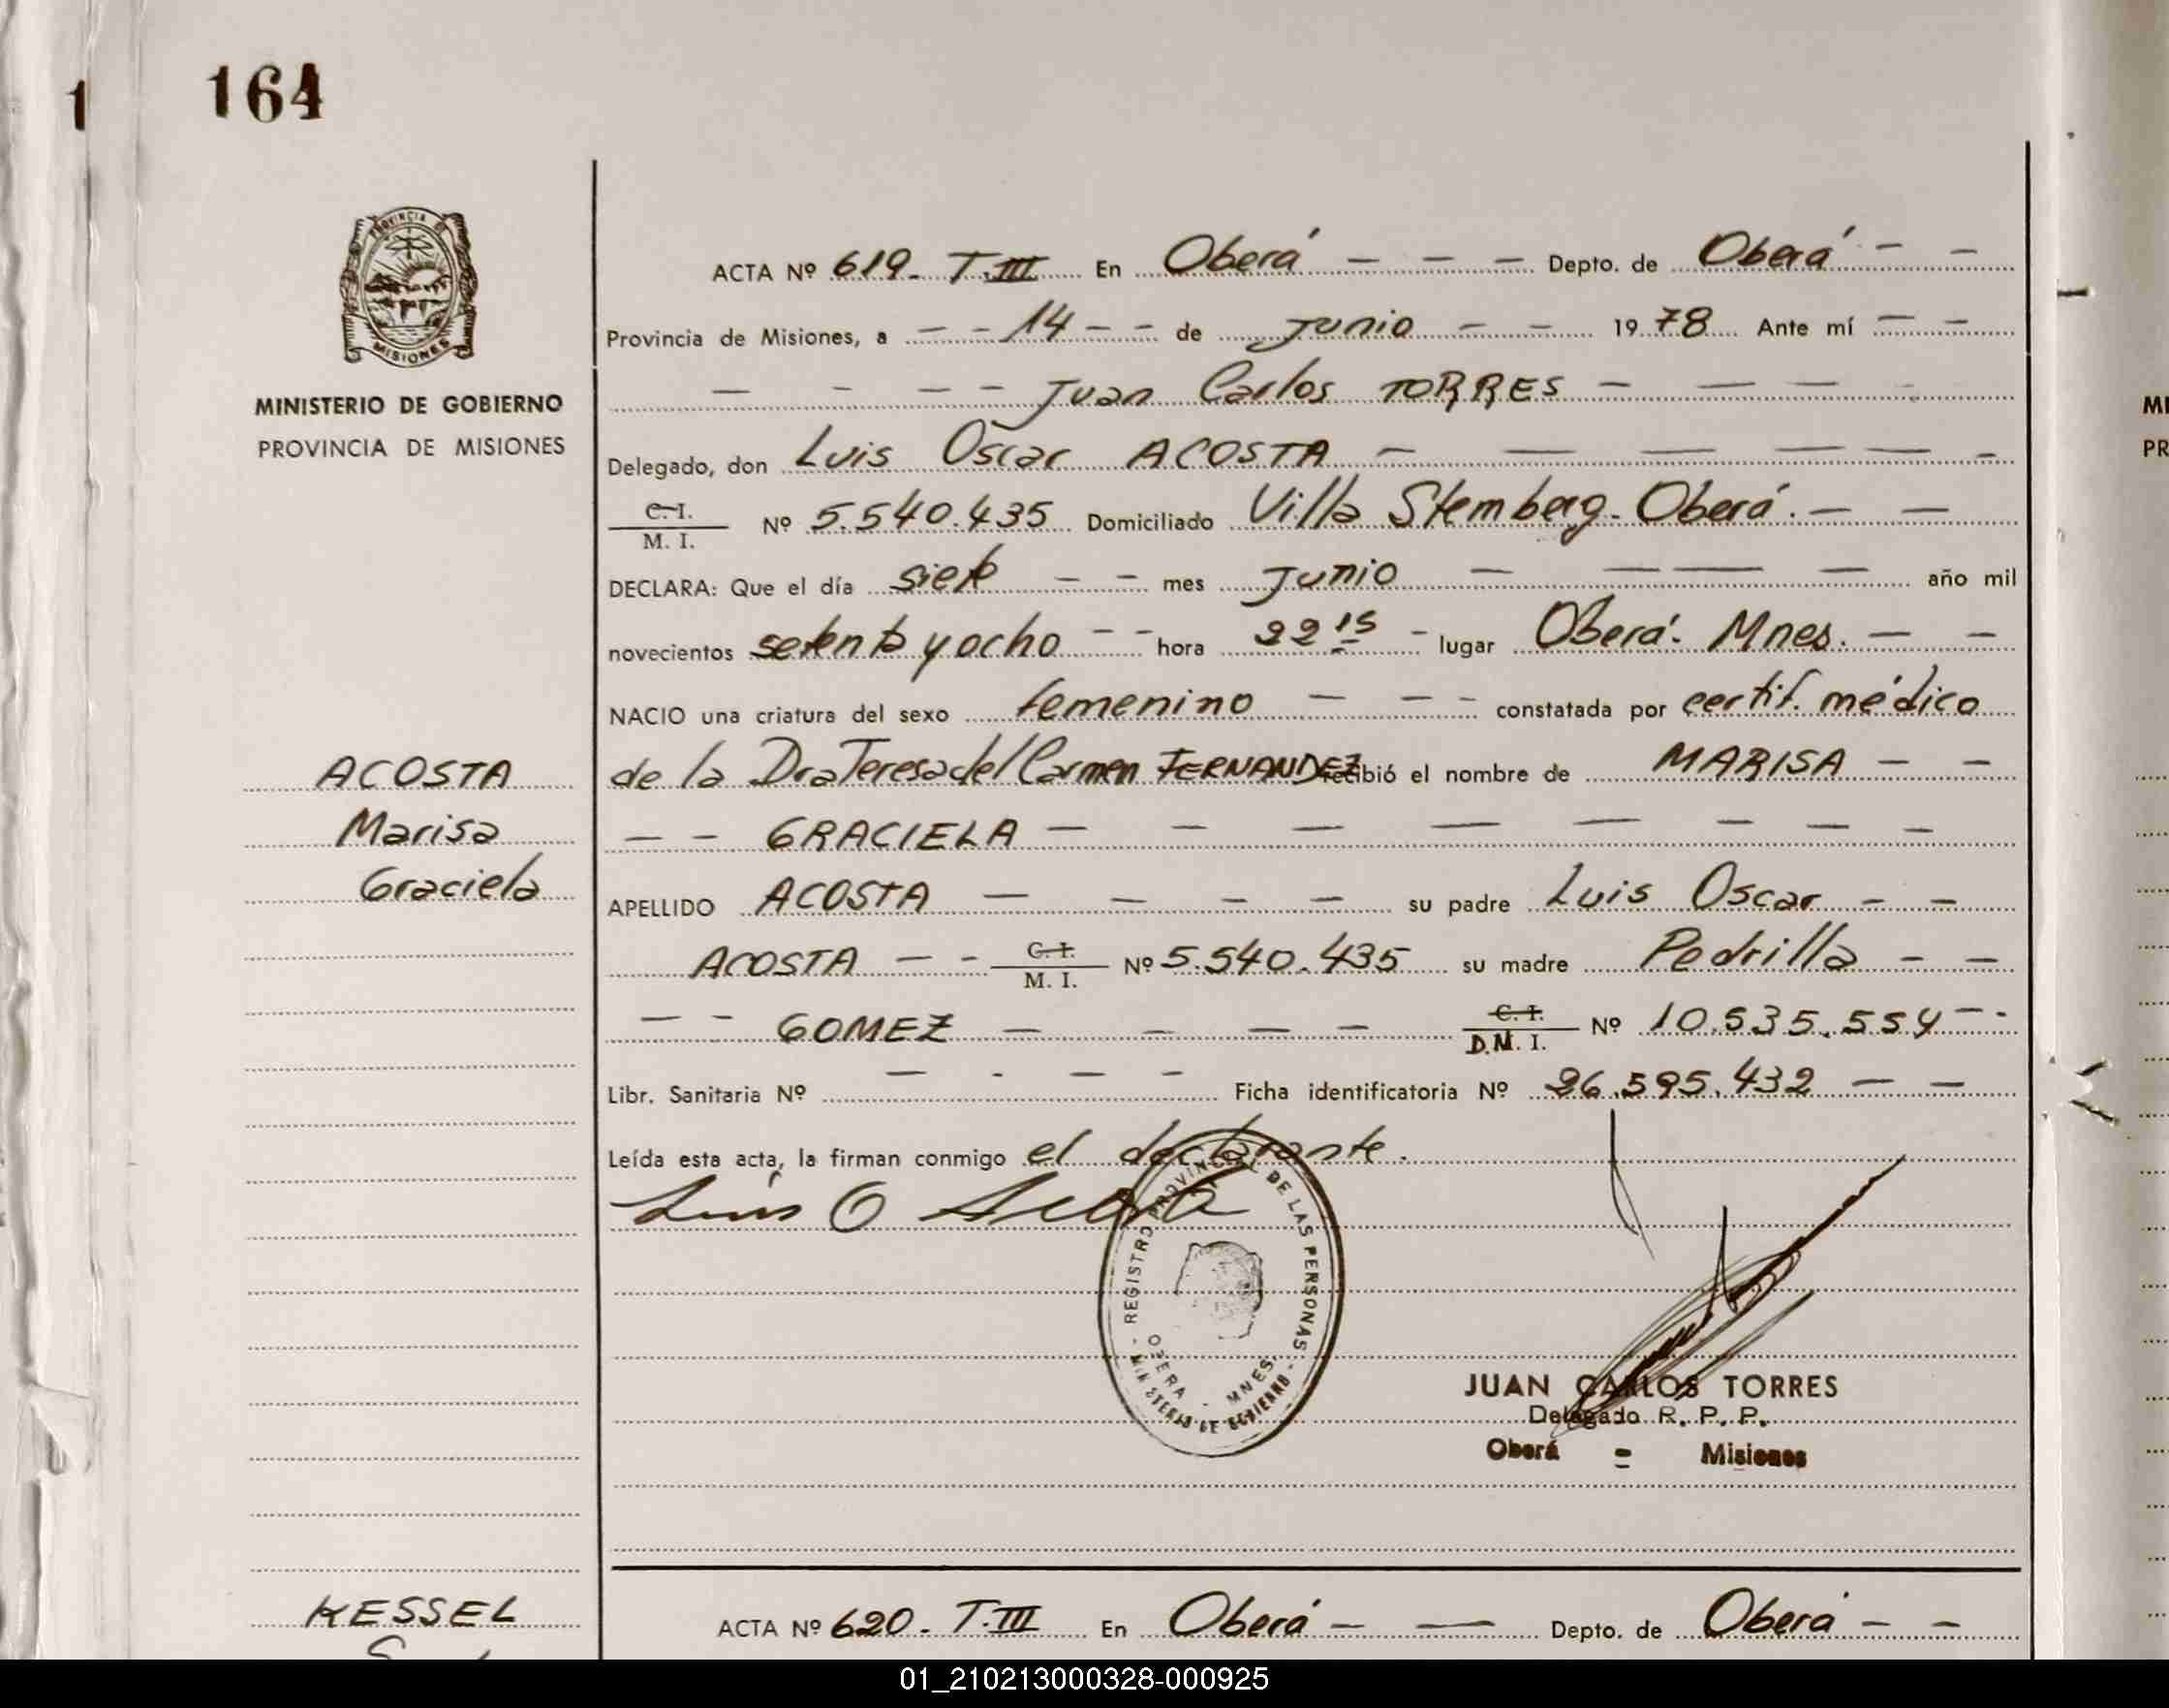 1
164
PROVINCIA D
MISIONES
MINISTERIO DE GOBIERNO
PROVINCIA DE MISIONES
ACTA Nº 619- T.III En Oberá — — — Depto. de Oberá — —
Provincia de Misiones, a — — 14 — — de Junio — — 1978 Ante mí — —
— — — — Juan Carlos TORRES — — — —
Delegado, don Luis Oscar ACOSTA — — — — — —
C.I. / M. I. Nº 5.540.435 Domiciliado Villa Stemberg. Oberá. — —
DECLARA: Que el día siete — — mes Junio — — — — año mil
novecientos setenta y ocho — — hora 22 15 — lugar Oberá. Mnes. — —
NACIO una criatura del sexo femenino — — — constatada por certif. médico
ACOSTA
de la Dra Teresa del Carmen FERNANDEZ recibió el nombre de MARISA — —
Marisa
— — GRACIELA — — — — — — — —
Graciela
APELLIDO ACOSTA — — — — su padre Luis Oscar — —
ACOSTA — — C.I. / M. I. Nº 5.540.435 su madre Pedrilla — —
— — GOMEZ — — — — C.I. / D.M. I. Nº 10.535.554 — -
Libr. Sanitaria Nº — - — — Ficha identificatoria Nº 26.595.432 — —
Leída esta acta, la firman conmigo el declarante.
Luis O Acosta
REGISTRO PROVINCIAL DE LAS PERSONAS - MINISTERIO DE GOBIERNO -
OBERA - MNES.
JUAN CARLOS TORRES
Delegado R. P. P.
Oberá = Misiones
KESSEL
ACTA Nº 620- T.III En Oberá — — Depto. de Oberá — —
MI
PR
01_210213000328-000925